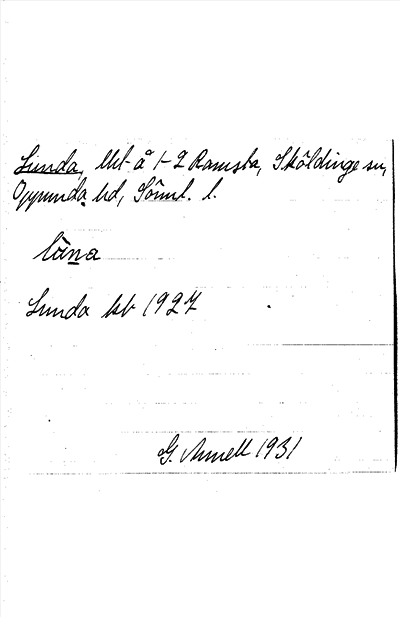 Lunda, lht å 1-2 Ramsta, Sköldinge sn,
Oppunda hd, Söml. l.
lùna
Lunda kb 1927
G. Annell 1931